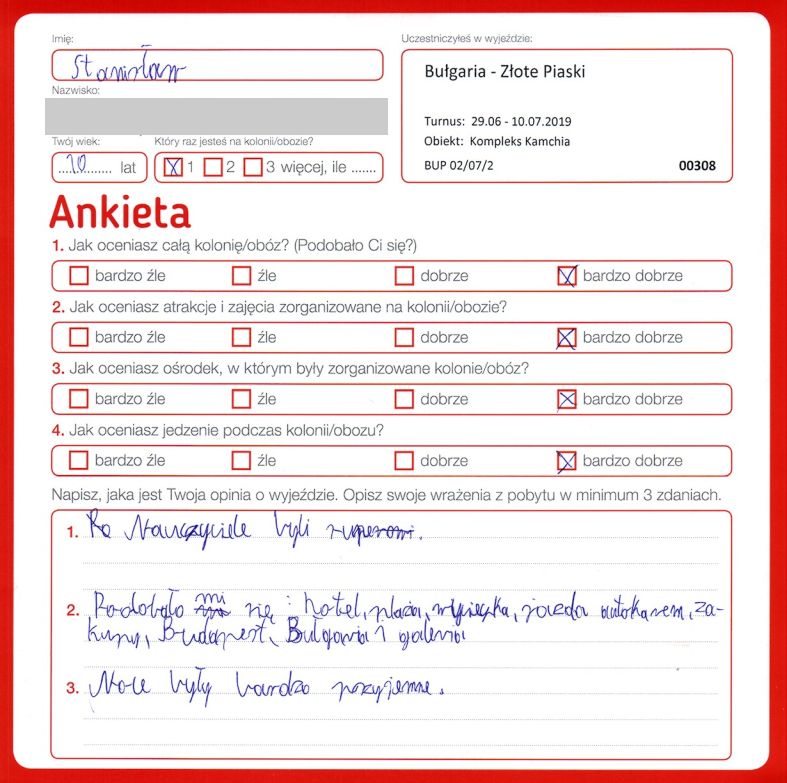 Imię:
Stanisław
Uczestniczyłeś w wyjeździe:
Nazwisko:
Bułgaria - Złote Piaski
Turnus: 29.06 - 10.07.2019
Obiekt: Kompleks Kamchia
BUP 02/07/2 00308
Twój wiek:
10 lat
Który raz jesteś na kolonii/obozie?
1 2 3 więcej, ile .......
Ankieta
1. Jak oceniasz całą kolonię/obóz? (Podobało Ci się?)
bardzo źle źle dobrze bardzo dobrze
2. Jak oceniasz atrakcje i zajęcia zorganizowane na kolonii/obozie?
bardzo źle źle dobrze bardzo dobrze
3. Jak oceniasz ośrodek, w którym były zorganizowane kolonie/obóz?
bardzo źle źle dobrze bardzo dobrze
4. Jak oceniasz jedzenie podczas kolonii/obozu?
bardzo źle źle dobrze bardzo dobrze
Napisz, jaka jest Twoja opinia o wyjeździe. Opisz swoje wrażenia z pobytu w minimum 3 zdaniach.
1. Nauczyciele byli superowi.
2. Podobało mi się : hotel, plaża, wycieczka, jazda autokarem, za-
kupy, Budapest, Bułgaria i galeria
3. Noce były bardzo przyjemne.